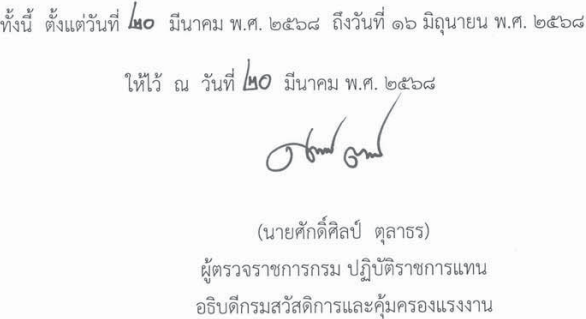 ทั้งนี้ ตั้งแต่วันที่ ๒๐ มีนาคม พ.ศ. ๒๕๖๘ ถึงวันที่ ๑๖ มิถุนายน พ.ศ. ๒๕๖๘
ให้ไว้ ณ วันที่ ๒๐ มีนาคม พ.ศ. ๒๕๖๘
(นายศักดิ์ศิลป์ ตุลาธร)
ผู้ตรวจราชการกรม ปฏิบัติราชการแทน
อธิบดีกรมสวัสดิการและคุ้มครองแรงงาน